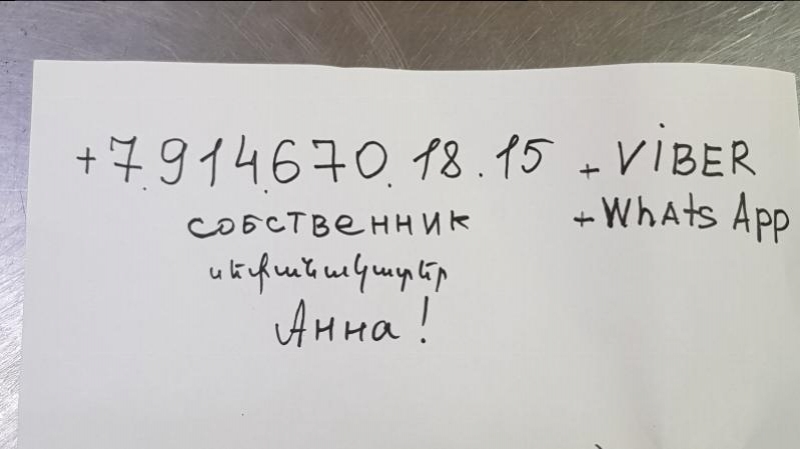 +7.914.670.18.15 + VIBER
+ WhAts App
собственник
սեփականատեր
Анна!